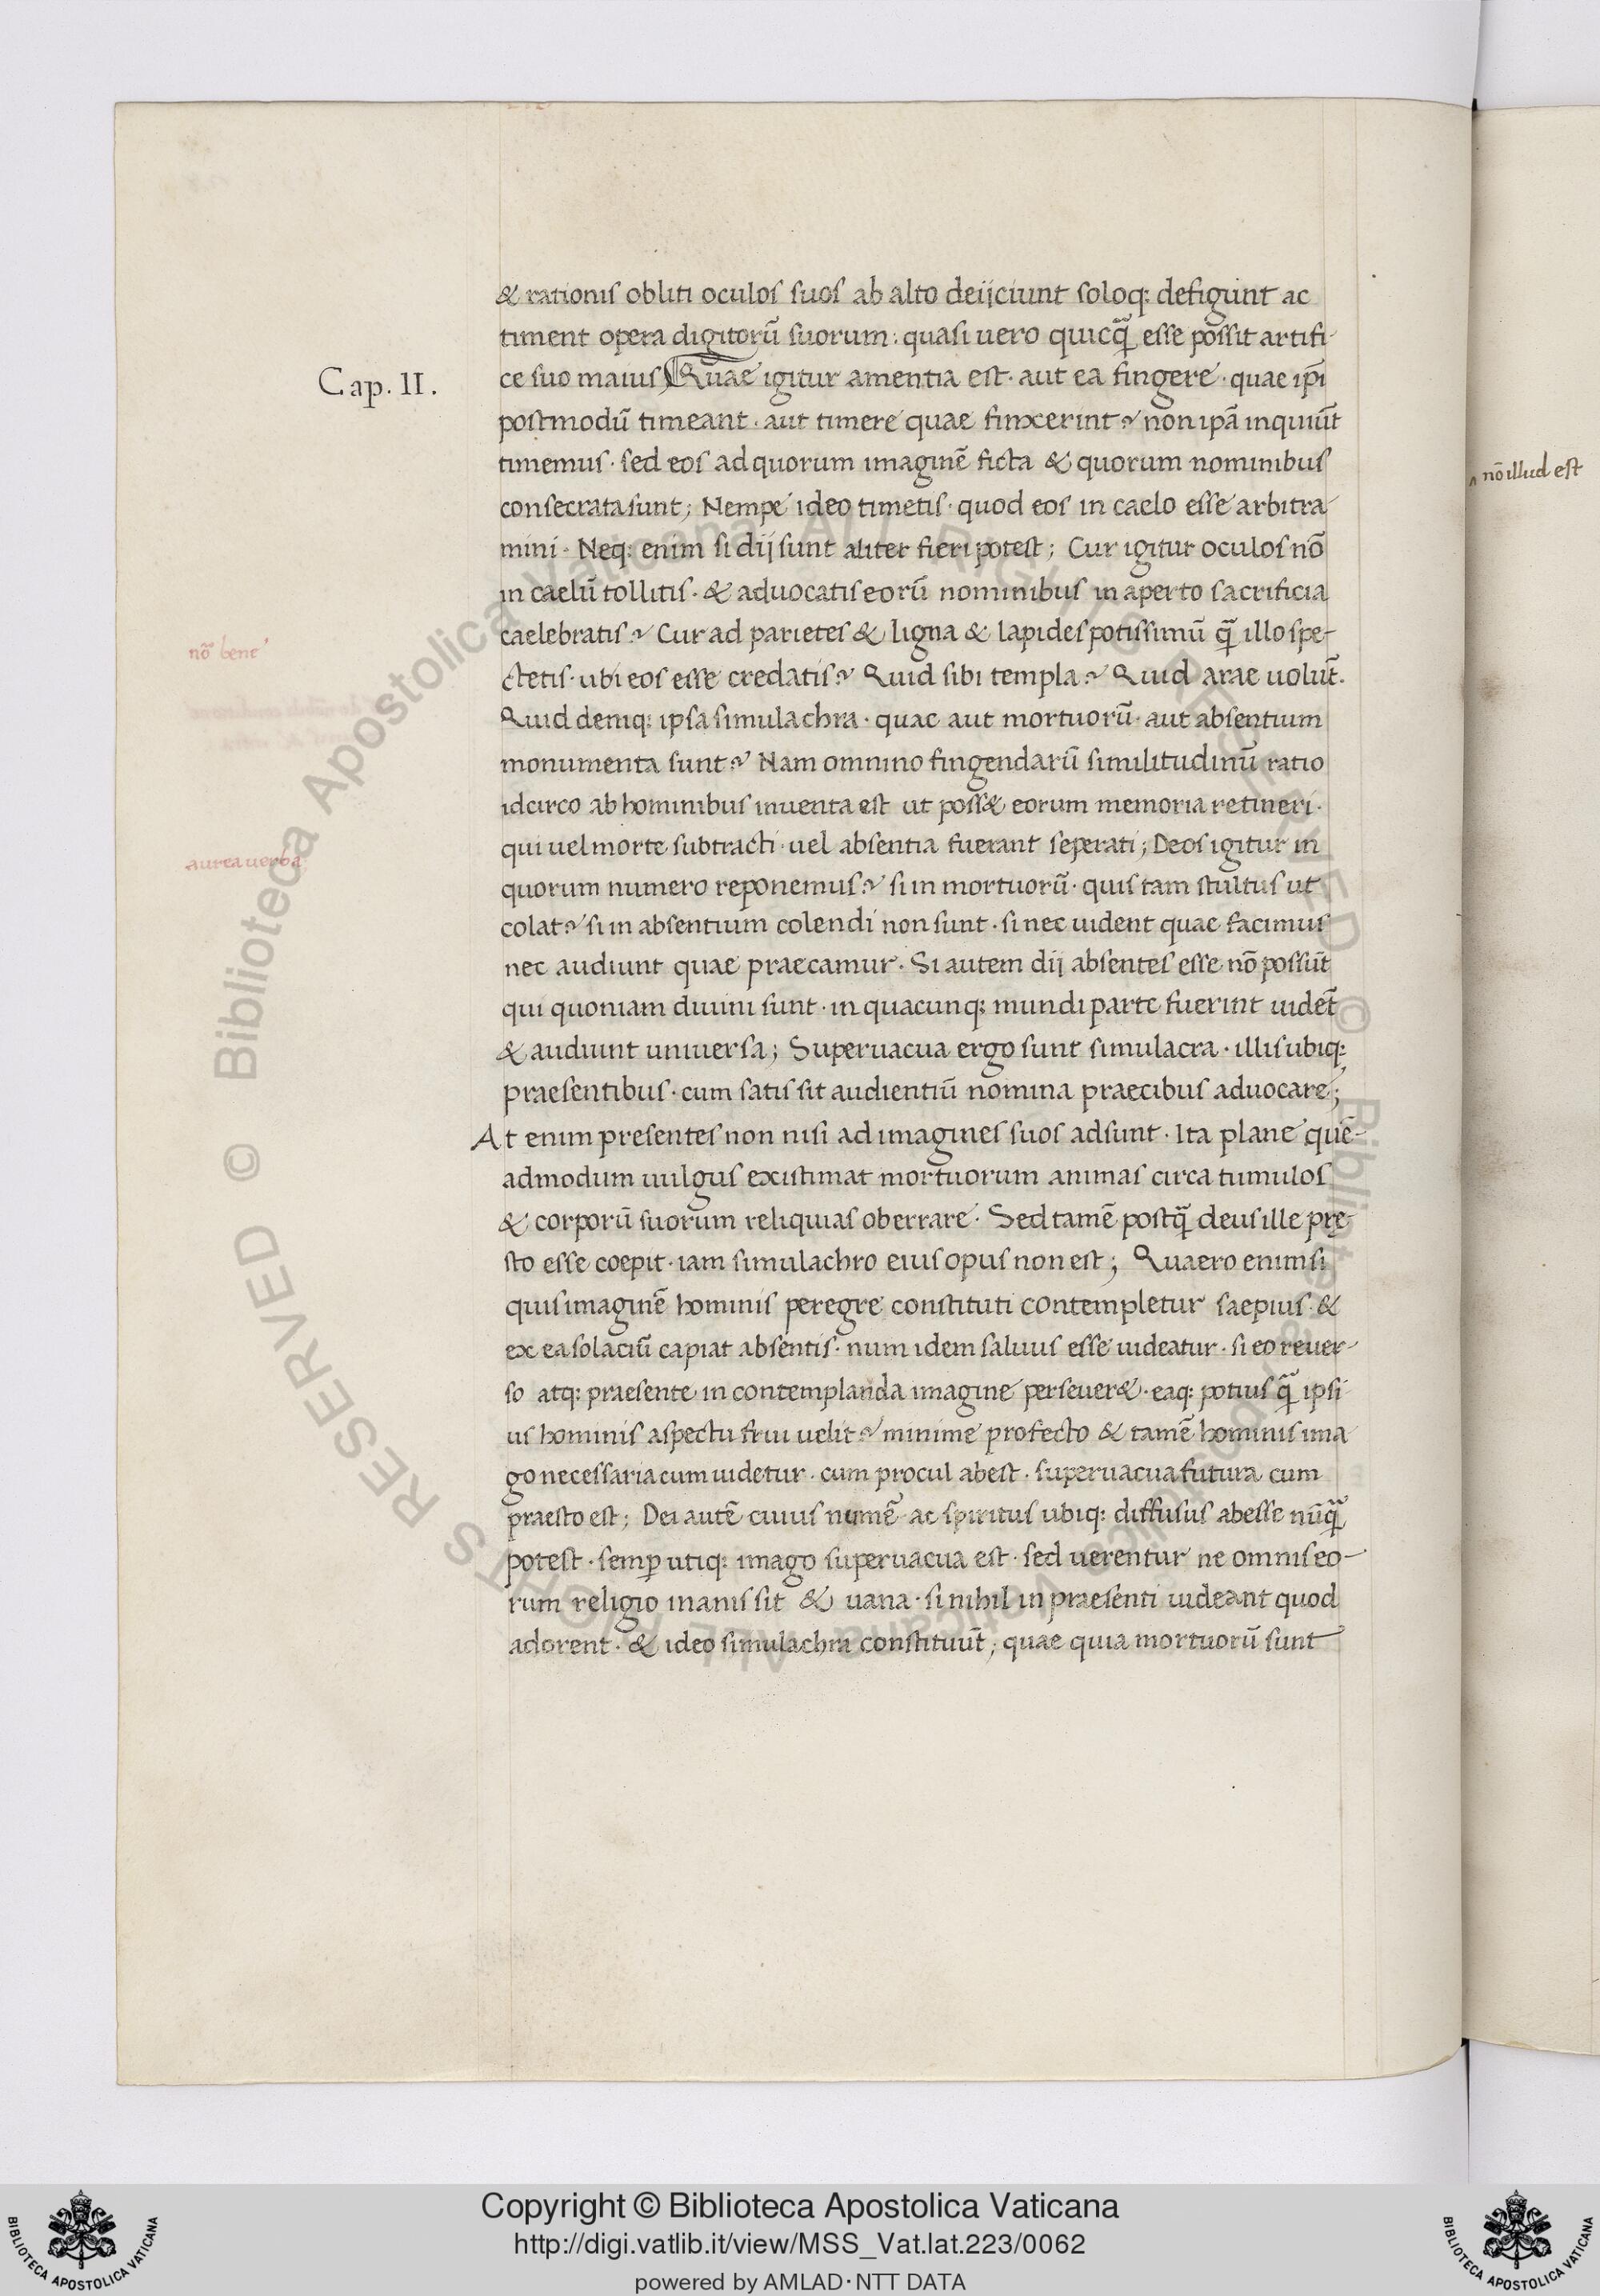 & rationis obliti oculos suos ab alto deijciunt soloq; defigunt ac
timent opera digitorū suorum: quasi uero quicq̄ esse possit artifi-
Cap. II.
ce suo maius, Quae igitur amentia est · aut ea fingere · quae ip̄i
postmodū timeant · aut timere quae finxerint? non ipā inquiūt
timemus · sed eos ad quorum imaginē ficta & quorum nominibus
consecrata sunt; Nempe ideo timetis · quod eos in caelo esse arbitra
mini · Neq; enim si dij sunt aliter fieri potest; Cur igitur oculos nō
in caelū tollitis · & aduocatis eorū nominibus in aperto sacrificia
caelebratis? Cur ad parietes & ligna & lapides potissimū q̄ illo spe-
nō bene
ctetis · ubi eos esse credatis? Quid sibi templa? Quid arae uolūt.
Quid deniq; ipsa simulachra · quae aut mortuorū · aut absentium
monumenta sunt? Nam omnino fingendarū similitudinū ratio
idcirco ab hominibus inuenta est ut poss& eorum memoria retineri ·
qui uel morte subtracti · uel absentia fuerant seperati; Deos igitur in
aurea uerba
quorum numero reponemus? si in mortuorū · quis tam stultus ut
colat? si in absentium colendi non sunt · si nec uident quae facimus
nec audiunt quae praecamur · Si autem dij absentes esse nō possūt
qui quoniam diuini sunt · in quacunq; mundi parte fuerint uidēt
& audiunt uniuersa; Superuacua ergo sunt simulacra · illis ubiq;
praesentibus · cum satis sit audientiū nomina praecibus aduocare;
At enim presentes non nisi ad imagines suos adsunt · Ita plane quē-
admodum uulgus existimat mortuorum animas circa tumulos
& corporū suorum reliquias oberrare · Sed tamē postq̄ deus ille prę-
sto esse coepit · iam simulachro eius opus non est; Quaero enim si
quis imaginē hominis peregre constituti contempletur saepius · &
ex ea solaciū capiat absentis · num idem saluus esse uideatur · si eo reuer-
so atq; praesente in contemplanda imagine perseuer& · eaq; potius q̄ ipsi-
us hominis aspectu frui uelit? minime profecto & tamē hominis ima
go necessaria cum uidetur · cum procul abest · superuacua futura cum
praesto est; Dei autē cuius numē ac spiritus ubiq; diffusus abesse nūq̄
potest · semp̄ utiq; imago superuacua est · sed uerentur ne omnis eo-
rum religio inanis sit & uana · si nihil in praesenti uideant quod
adorent · & ideo simulachra constituūt; quae quia mortuorū sunt
nō illud est
Copyright © Biblioteca Apostolica Vaticana
http://digi.vatlib.it/view/MSS_Vat.lat.223/0062
powered by AMLAD·NTT DATA
BIBLIOTECA APOSTOLICA VATICANA
BIBLIOTECA APOSTOLICA VATICANA
© Biblioteca Apostolica Vaticana ALL RIGHTS RESERVED
© Biblioteca Apostolica Vaticana ALL RIGHTS RESERVED